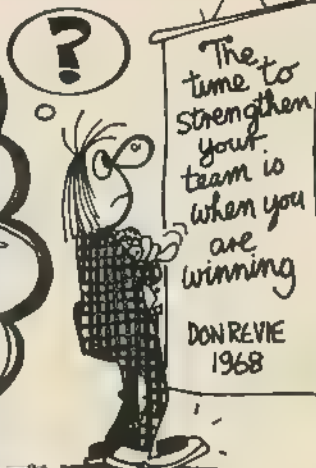 ?
The
time to
strengthen
your
team is
when you
are
winning
DON REVIE
1968